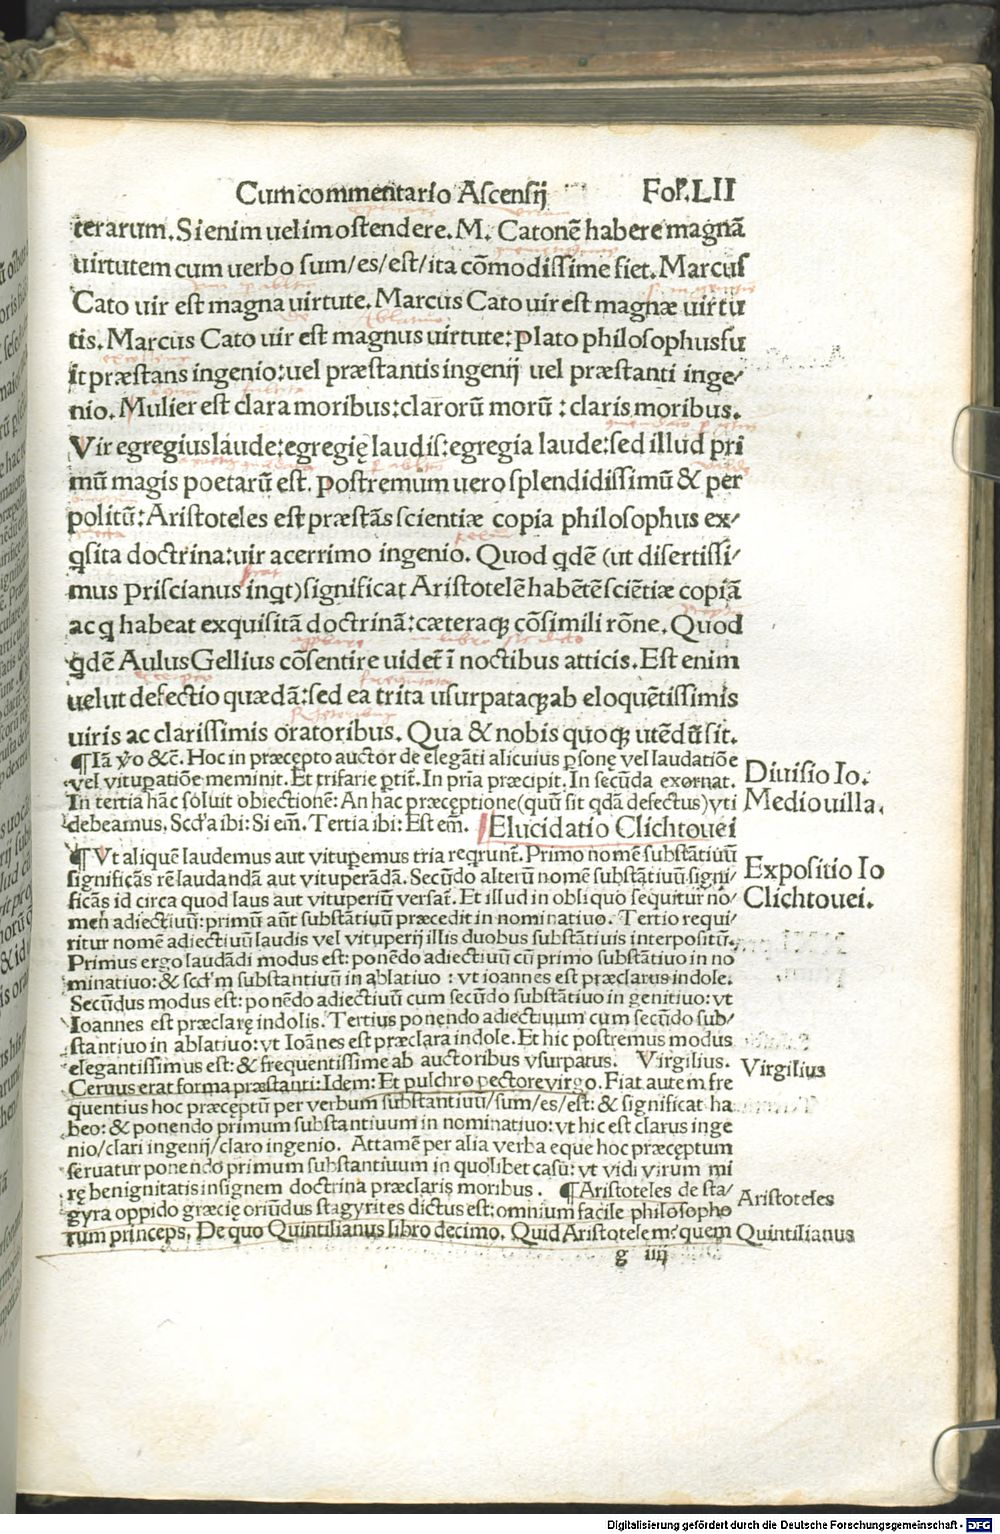 Cum commentario Ascensij Fo. LII
terarum. Si enim uelim ostendere. M. Catonē habere magnā
uirtutem cum uerbo sum/es/est/ita cōmodissime fiet. Marcus
Cato uir est magna uirtute. Marcus Cato uir est magnæ uirtu
tis. Marcus Cato uir est magnus uirtute: plato philosophus fu
it præstans ingenio: uel præstantis ingenij uel præstanti inge/
nio. Mulier est clara moribus: clarorū morū: claris moribus.
Vir egregius laude: egregię laudis: egregia laude: sed illud pri
mū magis poetarū est. postremum uero splendidissimū & per
politū: Aristoteles est præstās scientiæ copia philosophus ex/
qsita doctrina: uir acerrimo ingenio. Quod qdē (ut disertissi/
mus priscianus inqt) significat Aristotelē habētē sciētiæ copiā
ac q habeat exquisitā doctrinā: cæteraq; cōsimili rōne. Quod
qdē Aulus Gellius cōsentire uidet ī noctibus atticis. Est enim
uelut defectio quædā: sed ea trita usurpataq; ab eloquētissimis
uiris ac clarissimis oratoribus. Qua & nobis quoq; utēdū sit.
¶Iā v̊o &c̄. Hoc in præcepto auctor de elegāti alicuius psonę vel laudatiōe
vel vitupatiōe meminit. Et trifarie ptit. In pria præcipit. In secūda exornat.
In tertia hāc soluit obiectionē: An hac præceptione (quū sit qdā defectus) vti
debeamus. Scd'a ibi: Si em̄. Tertia ibi: Est em̄. Elucidatio Clichtouei
Diuisio Io.
Mediouilla.
¶Vt aliquē laudemus aut vitupemus tria reqrunt. Primo nomē substātiuū
significās rē laudandā aut vituperādā. Secūdo alterū nomē substātiuū signi/
ficās id circa quod laus aut vituperiū versat. Et illud in obliquo sequitur no/
men adiectiuū: primū aūt substātiuū præcedit in nominatiuo. Tertio requi/
ritur nomē adiectiuū laudis vel vituperij illis duobus substātiuis interpositū.
Primus ergo laudādi modus est: ponēdo adiectiuū cū primo substātiuo in no
minatiuo: & scd'm substantiuū in ablatiuo: vt ioannes est præclarus indole.
Secūdus modus est: ponēdo adiectiuū cum secūdo substātiuo in genitiuo: vt
Ioannes est præclarę indolis. Tertius ponendo adiectiuum cum secūdo sub/
stantiuo in ablatiuo: vt Ioānes est præclara indole. Et hic postremus modus
elegantissimus est: & frequentissime ab auctoribus vsurpatus. Virgilius.
Ceruus erat forma præstanti: Idem: Et pulchro pectore virgo. Fiat autem fre
quentius hoc præceptū per verbum substantiuū/sum/es/est: & significat ha
beo: & ponendo primum substantiuum in nominatiuo: vt hic est clarus inge
nio/clari ingenij/claro ingenio. Attamē per alia verba eque hoc præceptum
seruatur ponendo primum substantiuum in quolibet casu: vt vidi virum mi
rę benignitatis insignem doctrina præclaris moribus. ¶Aristoteles de sta/
gyra oppido græcię oriūdus stagyrites dictus est: omnium facile philosopho
rum princeps. De quo Quintilianus libro decimo. Quid Aristotelem? quem
Expositio Io
Clichtouei.
Virgilius
Aristoteles
Quintilianus
g iiij
Digitalisierung gefördert durch die Deutsche Forschungsgemeinschaft - DFG